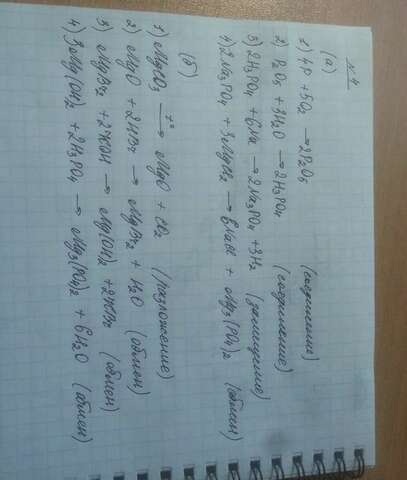 №4
(а)
1) 4P + 5O2 → 2P2O5 (соединение)
2) P2O5 + 3H2O → 2H3PO4 (соединение)
3) 2H3PO4 + 6Na → 2Na3PO4 + 3H2 (замещение)
4) 2Na3PO4 + 3MgCl2 → 6NaCl + Mg3(PO4)2 (обмен)
(б)
1) MgCO3 t° → MgO + CO2 (разложение)
2) MgO + 2HBr → MgBr2 + H2O (обмен)
3) MgBr2 + 2KOH → Mg(OH)2 + 2KBr (обмен)
4) 3Mg(OH)2 + 2H3PO4 → Mg3(PO4)2 + 6H2O (обмен)